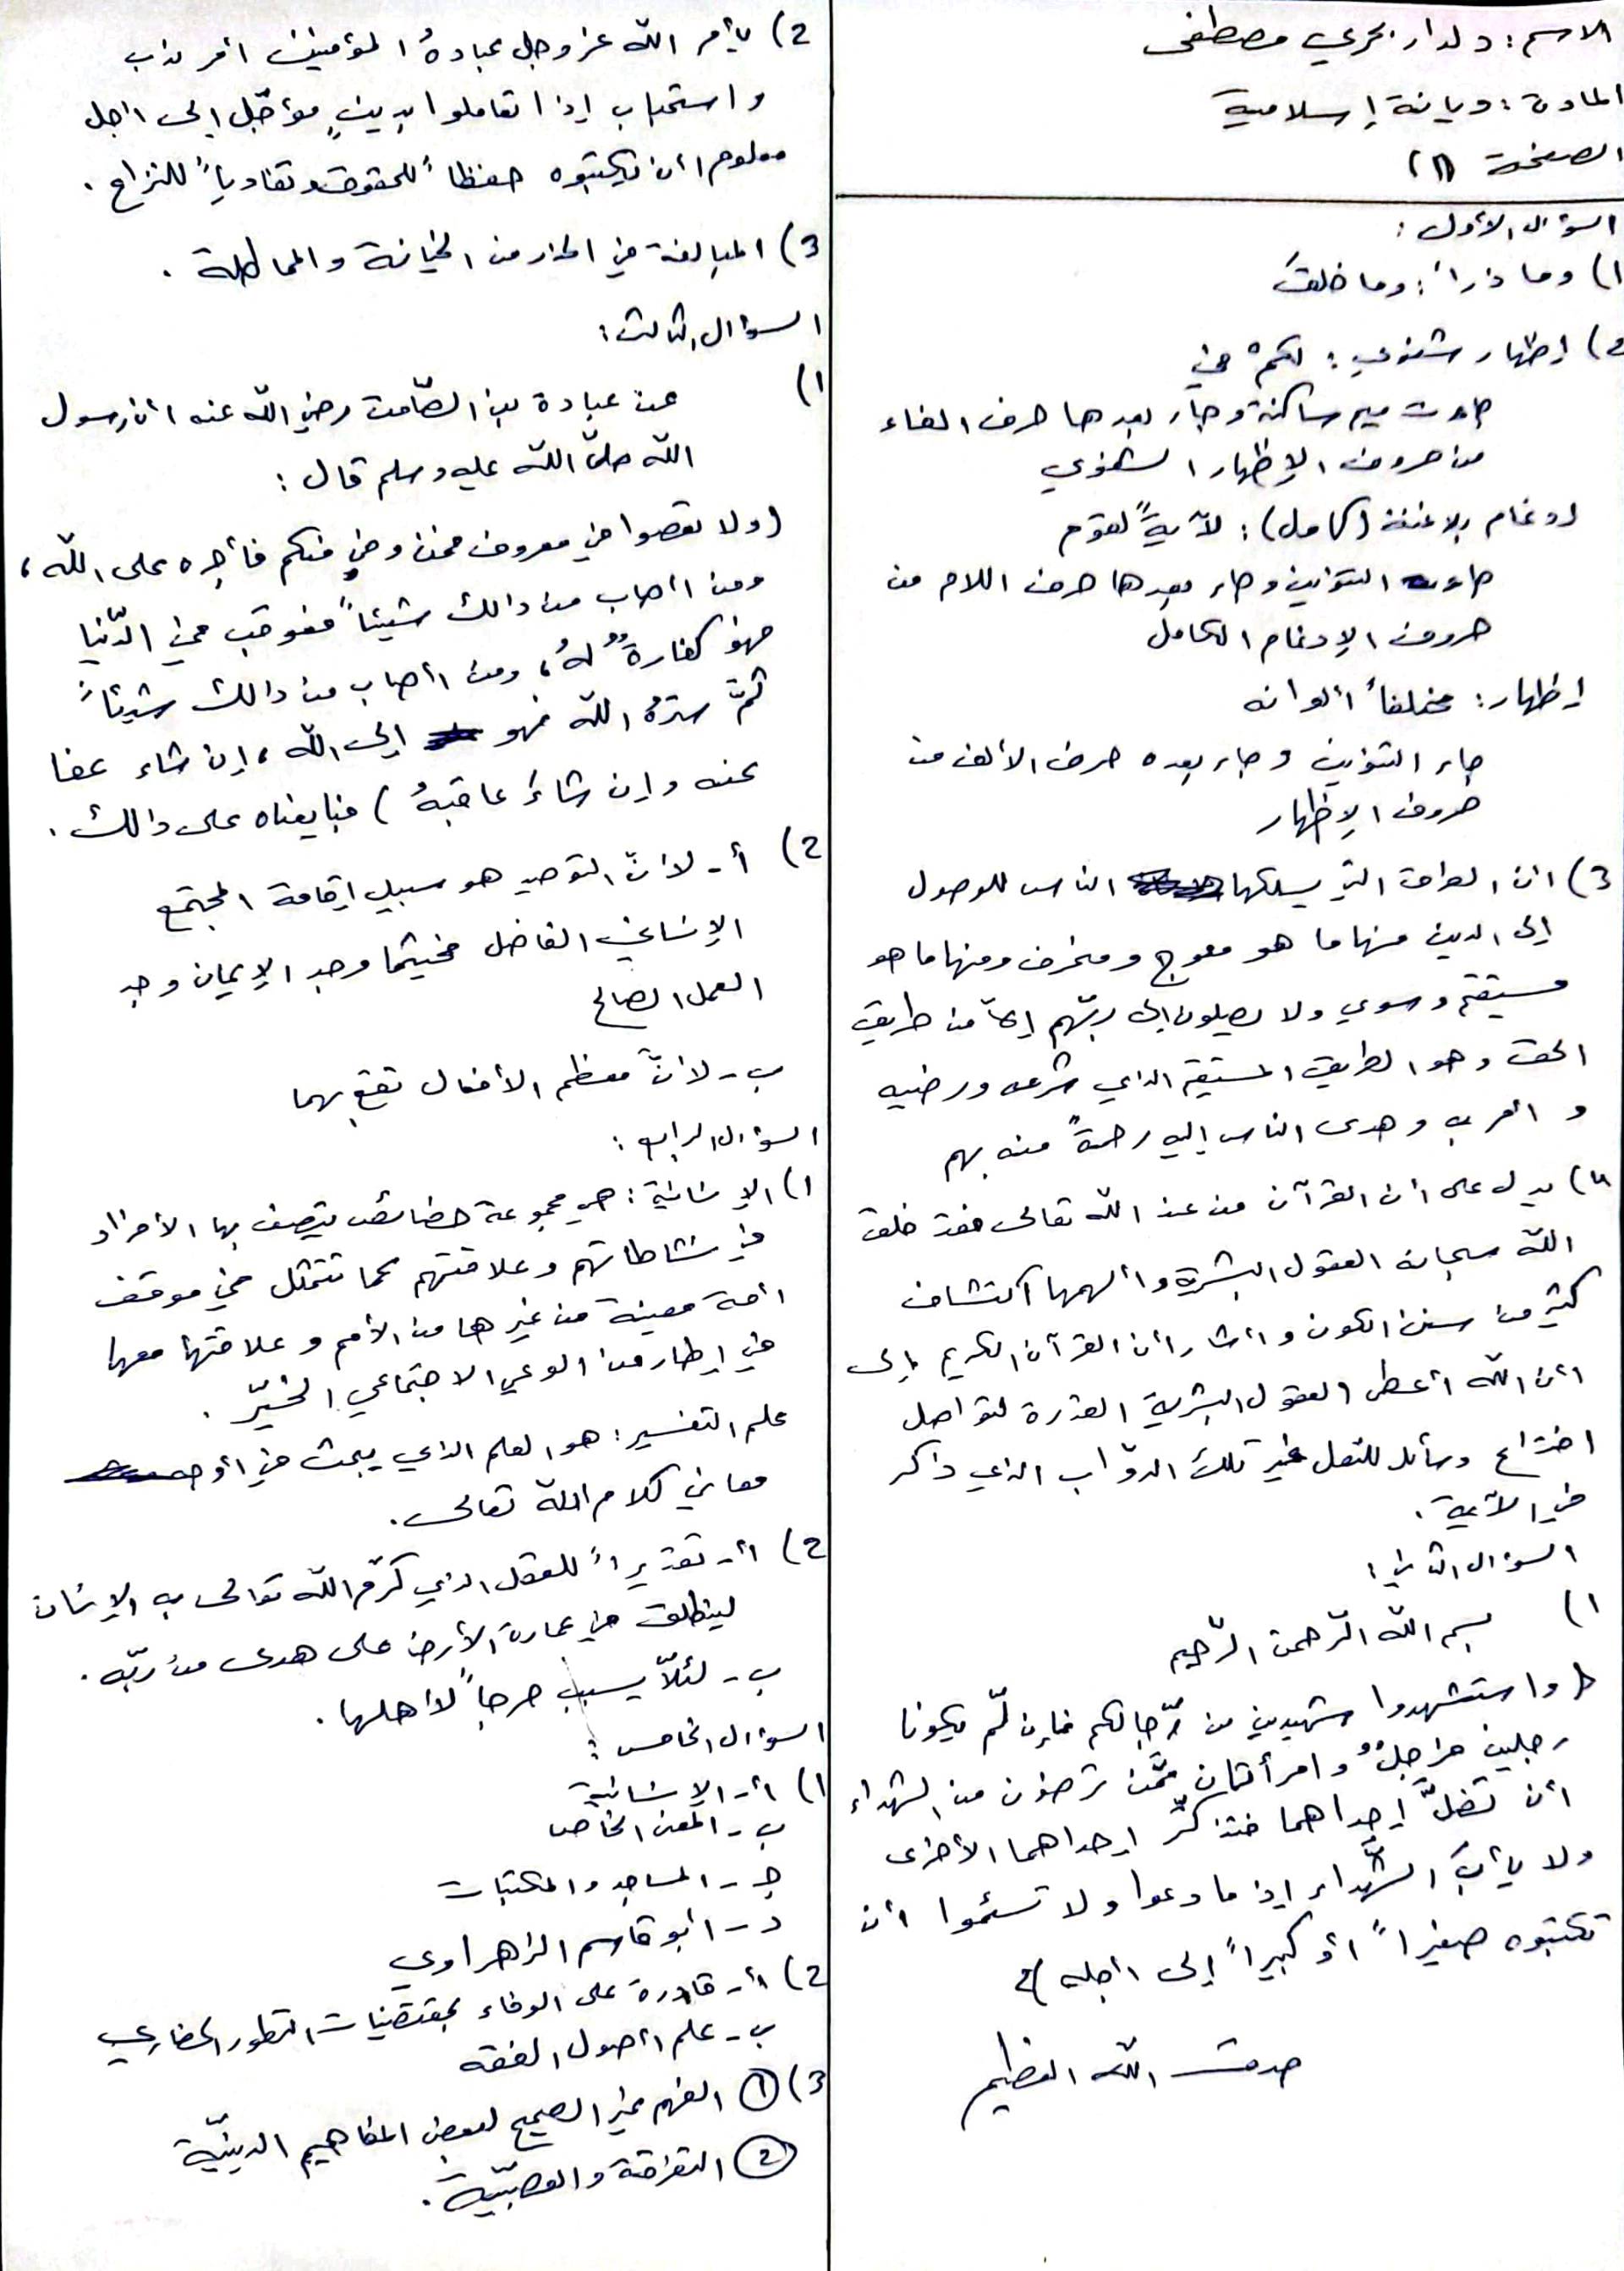 الاسم: دلدار بحري مصطفى
المادة: ديانة إسلامية
الصفحة (١)
السؤال الأول:
١) وما ذرأ: وما خلق
2) إظهار شفوي: لكمْ في
جاءت ميم ساكنة وجاء بعدها حرف الفاء
من حروف الإظهار الشفوي
إدغام بلا غنة (كامل): لآيةً لقوم
جاءت التنوين وجاء بعدها حرف اللام من
حروف الإدغام الكامل
إظهار: مختلفاً ألوانه
جاء التنوين وجاء بعده حرف الألف من
حروف الإظهار
3) أن الطرق التي يسلكها الناس للوصول
إلى الدين منها ما هو معوج ومنحرف ومنها ما هو
مستيقم وسوي ولا يصلون إلى ربّهم إلّا من طريق
الحق وهو الطريق المستيقم الذي شرعه ورضيه
و أمر به وهدى الناس إليه رحمةً منه بهم
٤) يدل على أن القرآن من عند الله تعالى فقد خلق
الله سبحانه العقول البشرية وألهمها اكتشاف
كثير من سنن الكون وأشار أن القرآن الكريم إلى
أن الله أعطى العقول البشرية القدرة لتواصل
اختراع وسائل للنقل غير تلك الدوّاب الذي ذاكر
في الآية.
السؤال الثاني:
١) بسم الله الرّحمن الرّحيم
﴿ واستشهدوا شهيدين من رّجالكم فإن لّم يكونا
رجلين فرجلٌ وامرأتان ممّن ترضون من الشهداء
أن تضلَّ إحداهما فتذكّر إحداهما الأخرى
ولا يأبَ الشُّهداء إذا ما دعوا ولا تسئموا أن
تكتبوه صغيراً أو كبيراً إلى أجله ﴾
صدق الله العظيم
2) يأمر الله عز وجل عبادهُ المؤمنين أمر ندب
واستحباب إذا تعاملوا بدينٍ مؤجّل إلى أجل
معلوم أن يكتبوه حفظاً للحقوق وتفادياً للنزاع.
3) المبالغة في الحذر من الخيانة والمماطلة.
السؤال الثالث:
١)
عن عبادة بن الصّامت رضي الله عنه أن رسول
الله صلّى الله عليه وسلم قال:
(ولا تعصوا في معروف فمن وفى منكم فأجره على الله،
ومن أصاب من دالك شيئاً فعوقب في الدّنيا
فهو كفارةٌ لهُ، ومن أصاب من دالك شيئاً
ثمَّ سترهُ الله فهو إلى الله، إن شاء عفا
عنه وإن شاءَ عاقبهُ) فبايعناه على دالك.
2) أ- لأنّ التوحيد هو سبيل إقامة المجتمع
الإنساني الفاضل فحيثما وجد الإيمان وجد
العمل الصالح
ب- لأنَّ معظم الأفعال تقع بهما
السؤال الرابع:
١) الإنسانية: هي مجموعة خصائص يتصف بها الأفراد
في نشاطاتهم وعلاقتهم كما تتمثل في موقف
أمة معينة من غيرها من الأمم وعلاقتها معها
في إطار من الوعي الاجتماعي الخيّر.
علم التفسير: هو العلم الذي يبحث في أوجه
معاني كلام الله تعالى.
2) أ- تقديراً للعقل الذي كرّم الله تعالى به الإنسان
لينطلق في عمارة الأرض على هدى من ربّه.
ب- لئلّا يسبب حرجاً لأهلها.
السؤال الخامس:
١) أ- الإنسانية
ب- المعنى الخاص
ج- المساجد والمكتبات
د- أبو قاسم الزهراوي
2) أ- قادرة على الوفاء بمقتضيات التطور الحضاري
ب- علم أصول الفقه
3) ① الفهم غير الصحيح لبعض المفاهيم الدينيّة
② التفرقة والعصبيّة.